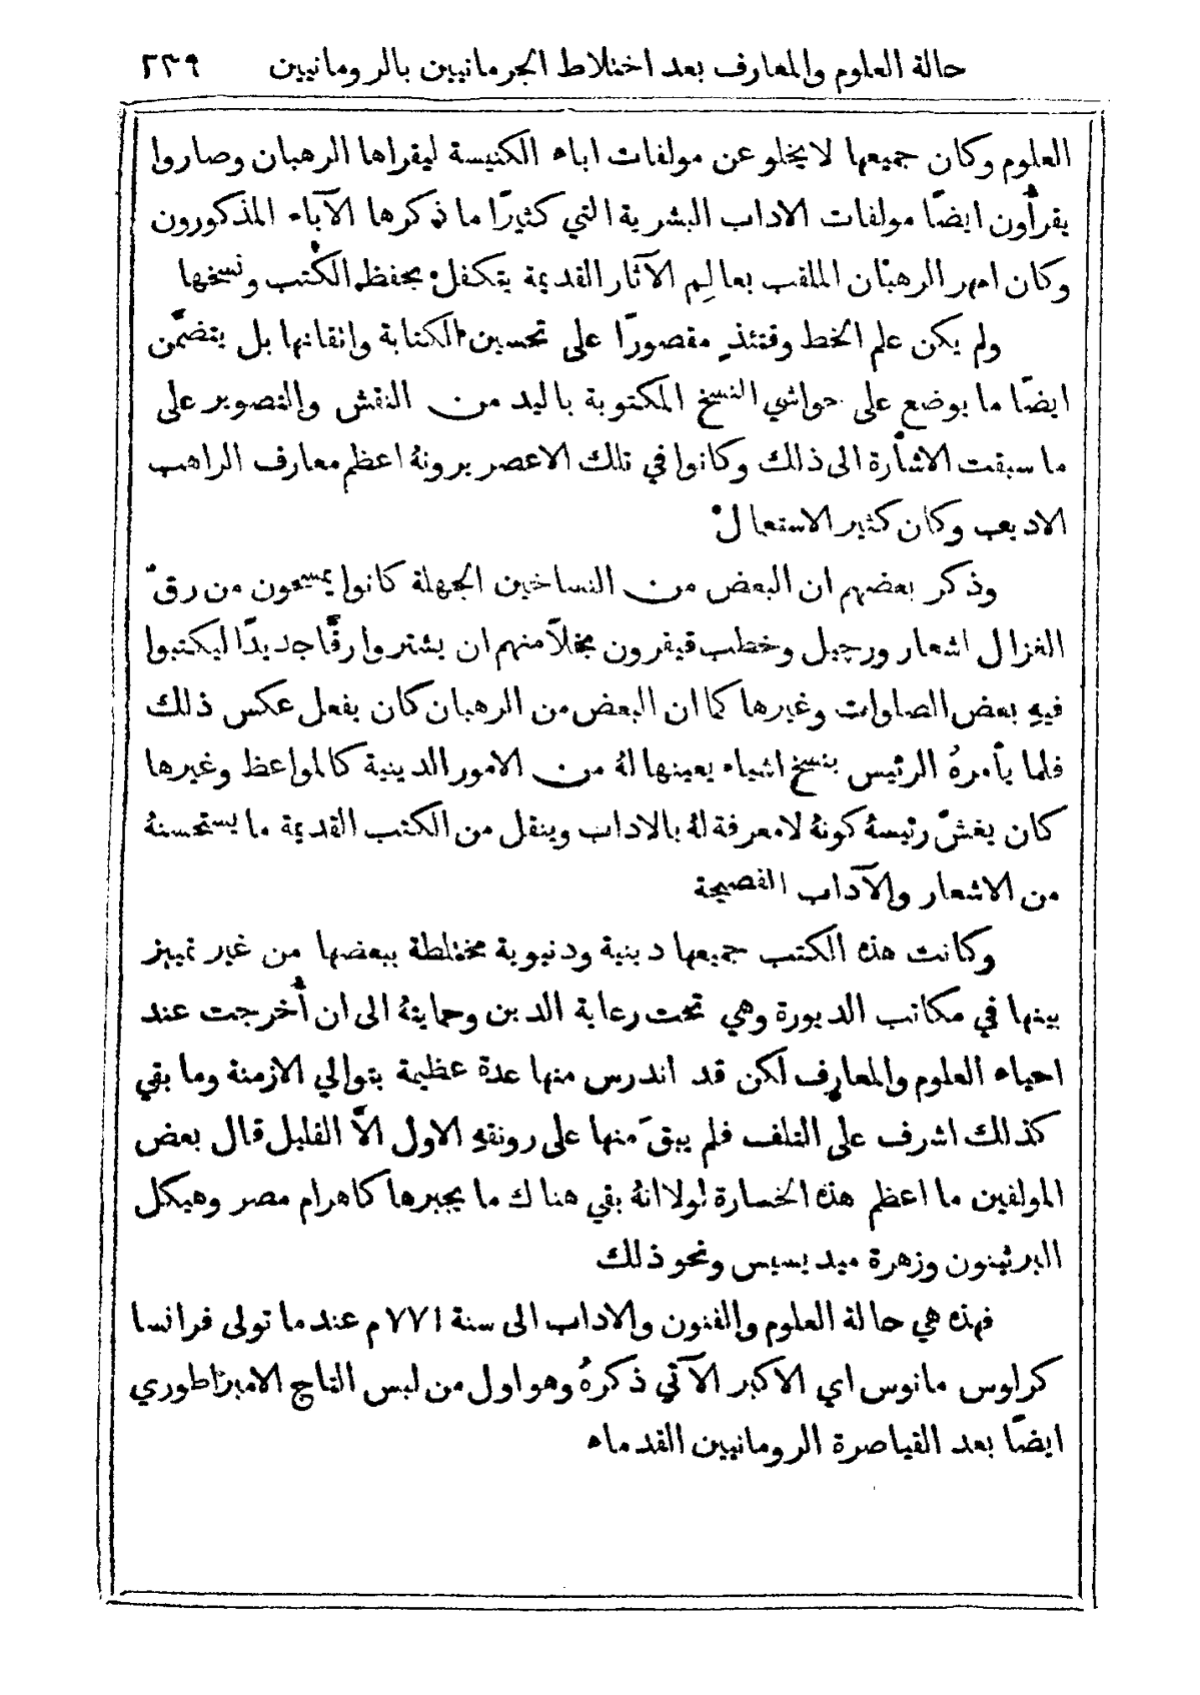 حالة العلوم والمعارف بعد اختلاط الجرمانيين بالرومانيين ٢٣٩
العلوم وكان جميعها لا يخلو عن مولفات اباء الكنيسة ليقراها الرهبان وصاروا
يقرأون ايضًا مولفات الاداب البشرية التي كثيرًا ما ذكرها الآباء المذكورون
وكان امهر الرهبان الملقب بعالِم الآثار القديمة يتكفل بحفظ الكُتب ونسخها
ولم يكن علم الخط وقتئذٍ مقصورًا على تحسين الكتابة واتقانها بل يتضمَّن
ايضًا ما يوضع على حواشي النسخ المكتوبة باليد من النقش والتصوير على
ما سبقت الاشارة الى ذلك وكانوا في تلك الاعصر يرونهُ اعظم معارف الراهب
الاديب وكان كثير الاستعمال
وذكر بعضهم ان البعض من النساخين الجهلة كانوا يمسحون من رق
الغزال اشعار ورجيل وخطب قيقرون بخلاً منهم ان يشتروا رقًّا جديدًا ليكتبوا
فيهِ بعض الصلوات وغيرها كما ان البعض من الرهبان كان يفعل عكس ذلك
فلما يأمرهُ الرئيس بنسخ اشياء يعينها لهُ من الامور الدينية كالمواعظ وغيرها
كان يغشّ رئيسهُ كونهُ لا معرفة لهُ بالاداب وينقل من الكتب القديمة ما يستحسنهُ
من الاشعار والآداب الفصيحة
وكانت هذه الكتب جميعها دينية ودنيوية مختلطة ببعضها من غير تمييز
بينها في مكاتب الديورة وهي تحت رعاية الدين وحمايتهُ الى ان أُخرجت عند
احياء العلوم والمعارف لكن قد اندرس منها عدة عظيمة بتوالي الازمنة وما بقي
كذلك اشرف على التلف فلم يبقَ منها على رونقهِ الاول الاَّ القليل قال بعض
المولفين ما اعظم هذه الخسارة لولا انهُ بقي هناك ما يجبرها كاهرام مصر وهيكل
البرثينون وزهرة ميديسيس ونحو ذلك
فهذه هي حالة العلوم والفنون والاداب الى سنة ٧٧١ م عند ما تولى فرانسا
كرلوس مانوس اي الاكبر الآتي ذكرهُ وهو اول من لبس التاج الامبراطوري
ايضًا بعد القياصرة الرومانيين القدماء